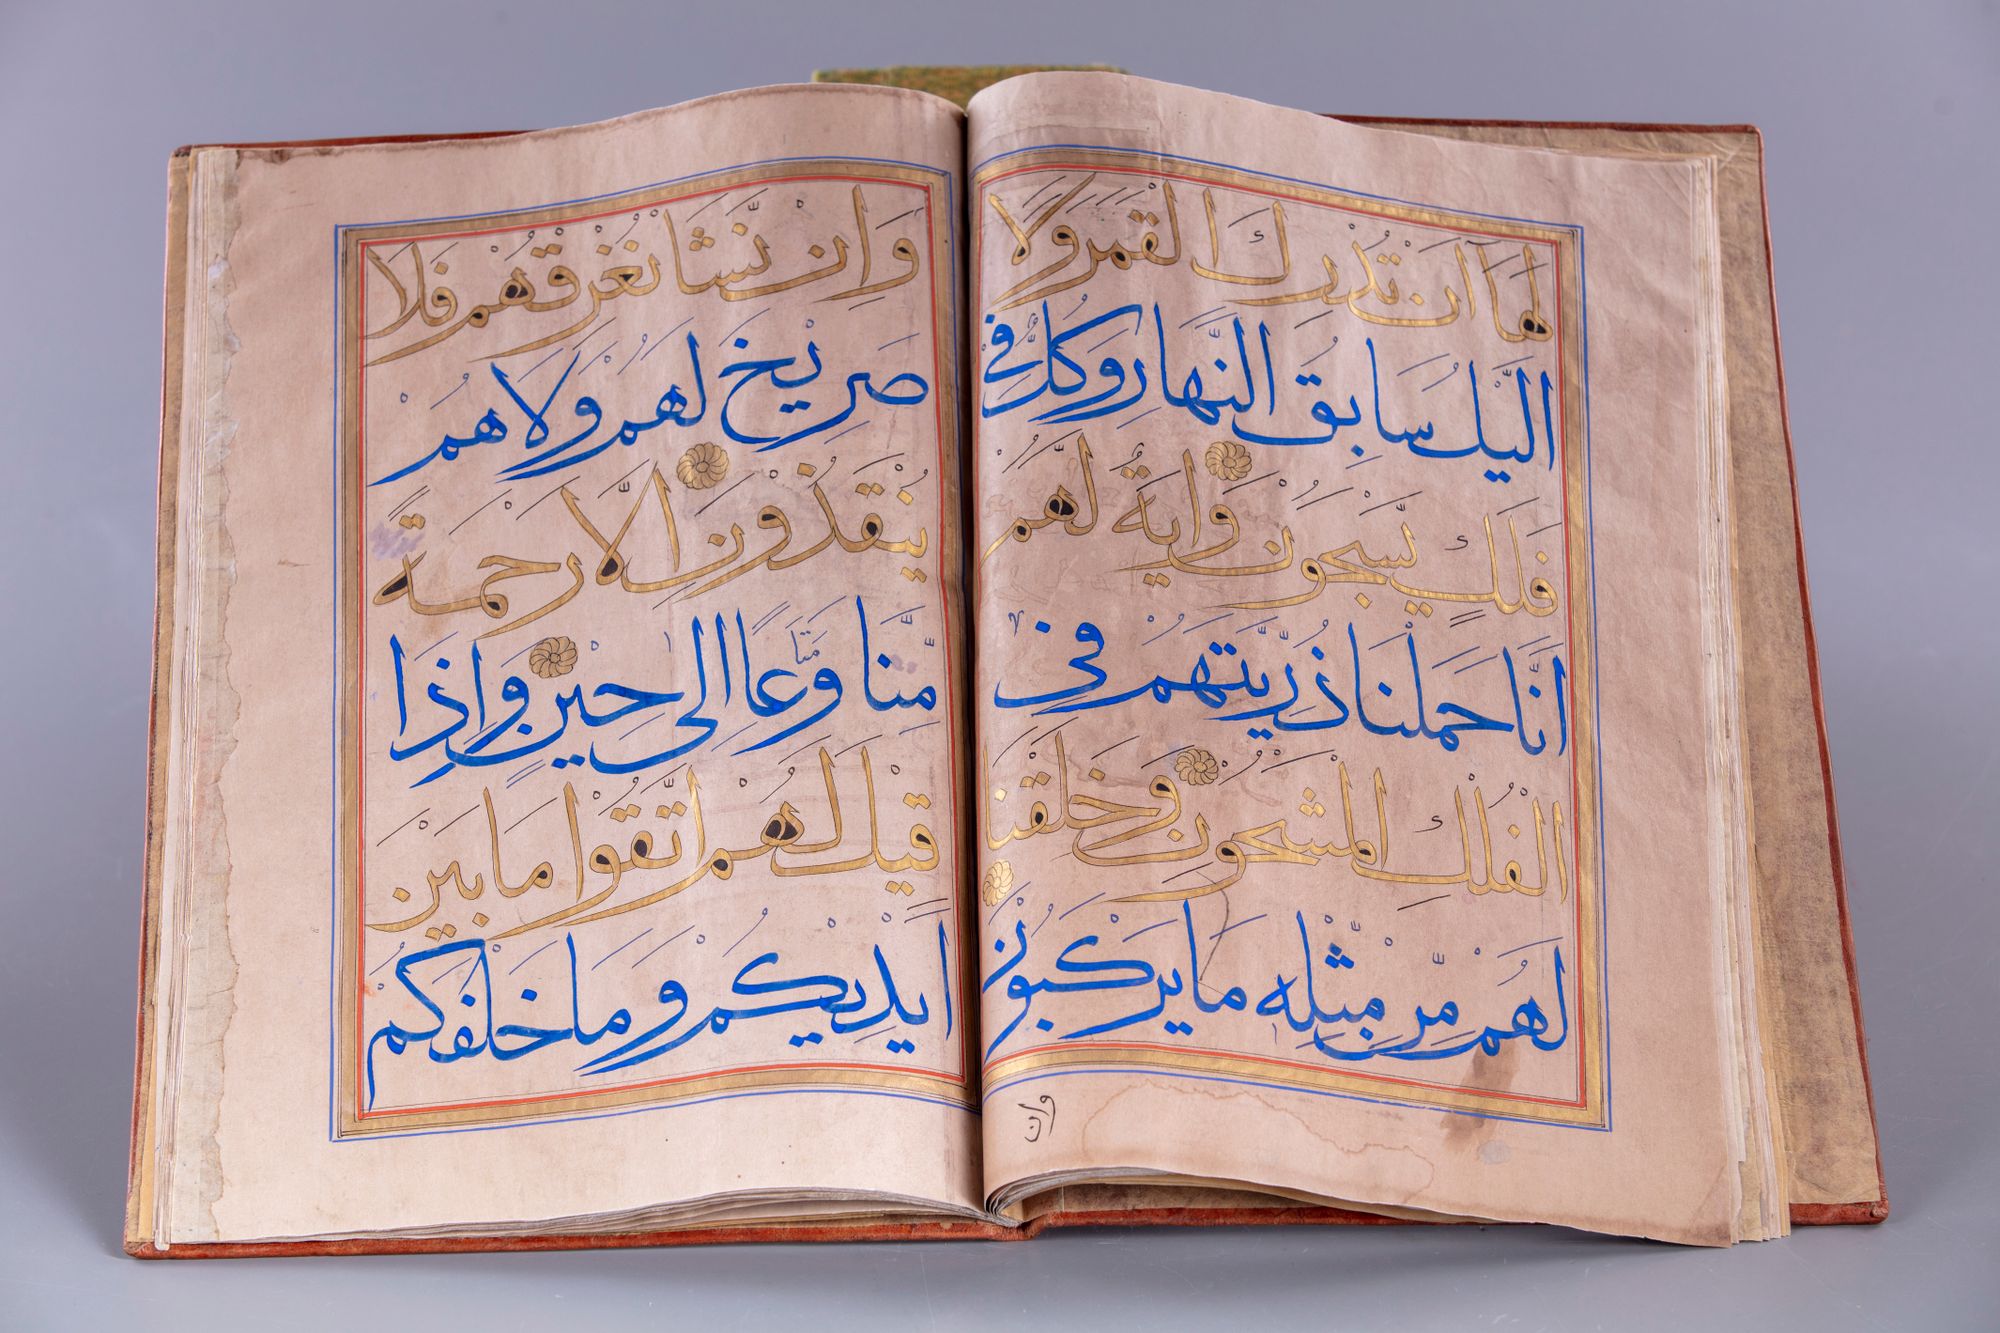 لَهَآ اَنْ تُدْرِكَ الْقَمَرَ وَلَا
الَّيْلُ سَابِقُ النَّهَارِ وَكُلٌّ فِي
فَلَكٍ يَّسْبَحُوْنَ وَاٰيَةٌ لَّهُمْ
اَنَّا حَمَلْنَا ذُرِّيَّتَهُمْ فِي
الْفُلْكِ الْمَشْحُوْنِ وَخَلَقْنَا
لَهُمْ مِّنْ مِّثْلِهٖ مَا يَرْكَبُوْنَ
وان
وَاِنْ نَّشَا نُغْرِقْهُمْ فَلَا
صَرِيْخَ لَهُمْ وَلَا هُمْ
يُنْقَذُوْنَ اِلَّا رَحْمَةً
مِّنَّا وَمَتَاعًا اِلٰى حِيْنٍ وَاِذَا
قِيْلَ لَهُمُ اتَّقُوْا مَا بَيْنَ
اَيْدِيْكُمْ وَمَا خَلْفَكُمْ